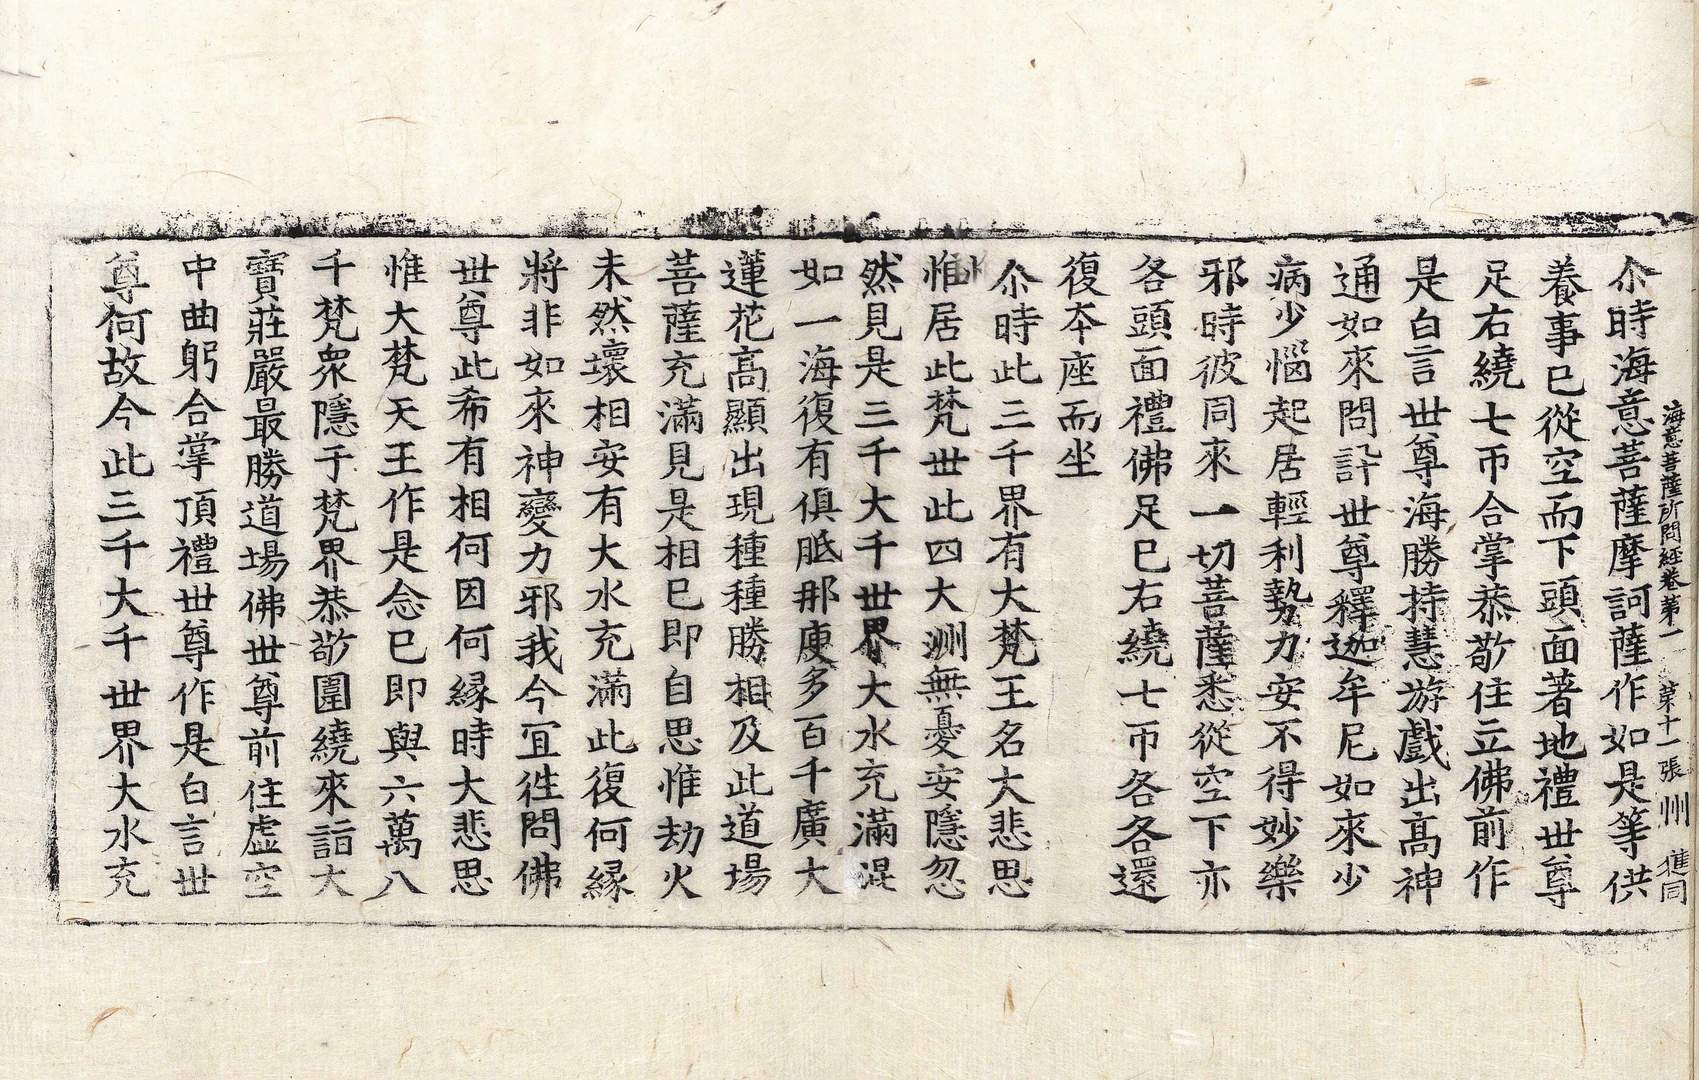 海意菩薩所問經卷第一　第十一張　州
尒時海意菩薩摩訶薩作如是等供
養事已從空而下頭面著地禮世尊
足右繞七帀合掌恭敬住立佛前作
是白言世尊海勝持慧游戲出高神
通如來問訊世尊釋迦牟尼如來少
病少惱起居輕利勢力安不得妙樂
邪時彼同來一切菩薩悉從空下亦
各頭面禮佛足已右繞七帀各各還
復本座而坐
尒時此三千界有大梵王名大悲思
惟居此梵世此四大洲無憂安隱忽
然見是三千大千世界大水充滿混
如一海復有俱胝那庾多百千廣大
蓮花高顯出現種種勝相及此道場
菩薩充滿見是相已即自思惟劫火
未然壞相安有大水充滿此復何緣
將非如來神變力邪我今宜往問佛
世尊此希有相何因何緣時大悲思
惟大梵天王作是念已即與六萬八
千梵衆隱于梵界恭敬圍繞來詣大
寶莊嚴最勝道場佛世尊前住虛空
中曲躬合掌頂禮世尊作是白言世
尊何故今此三千大千世界大水充